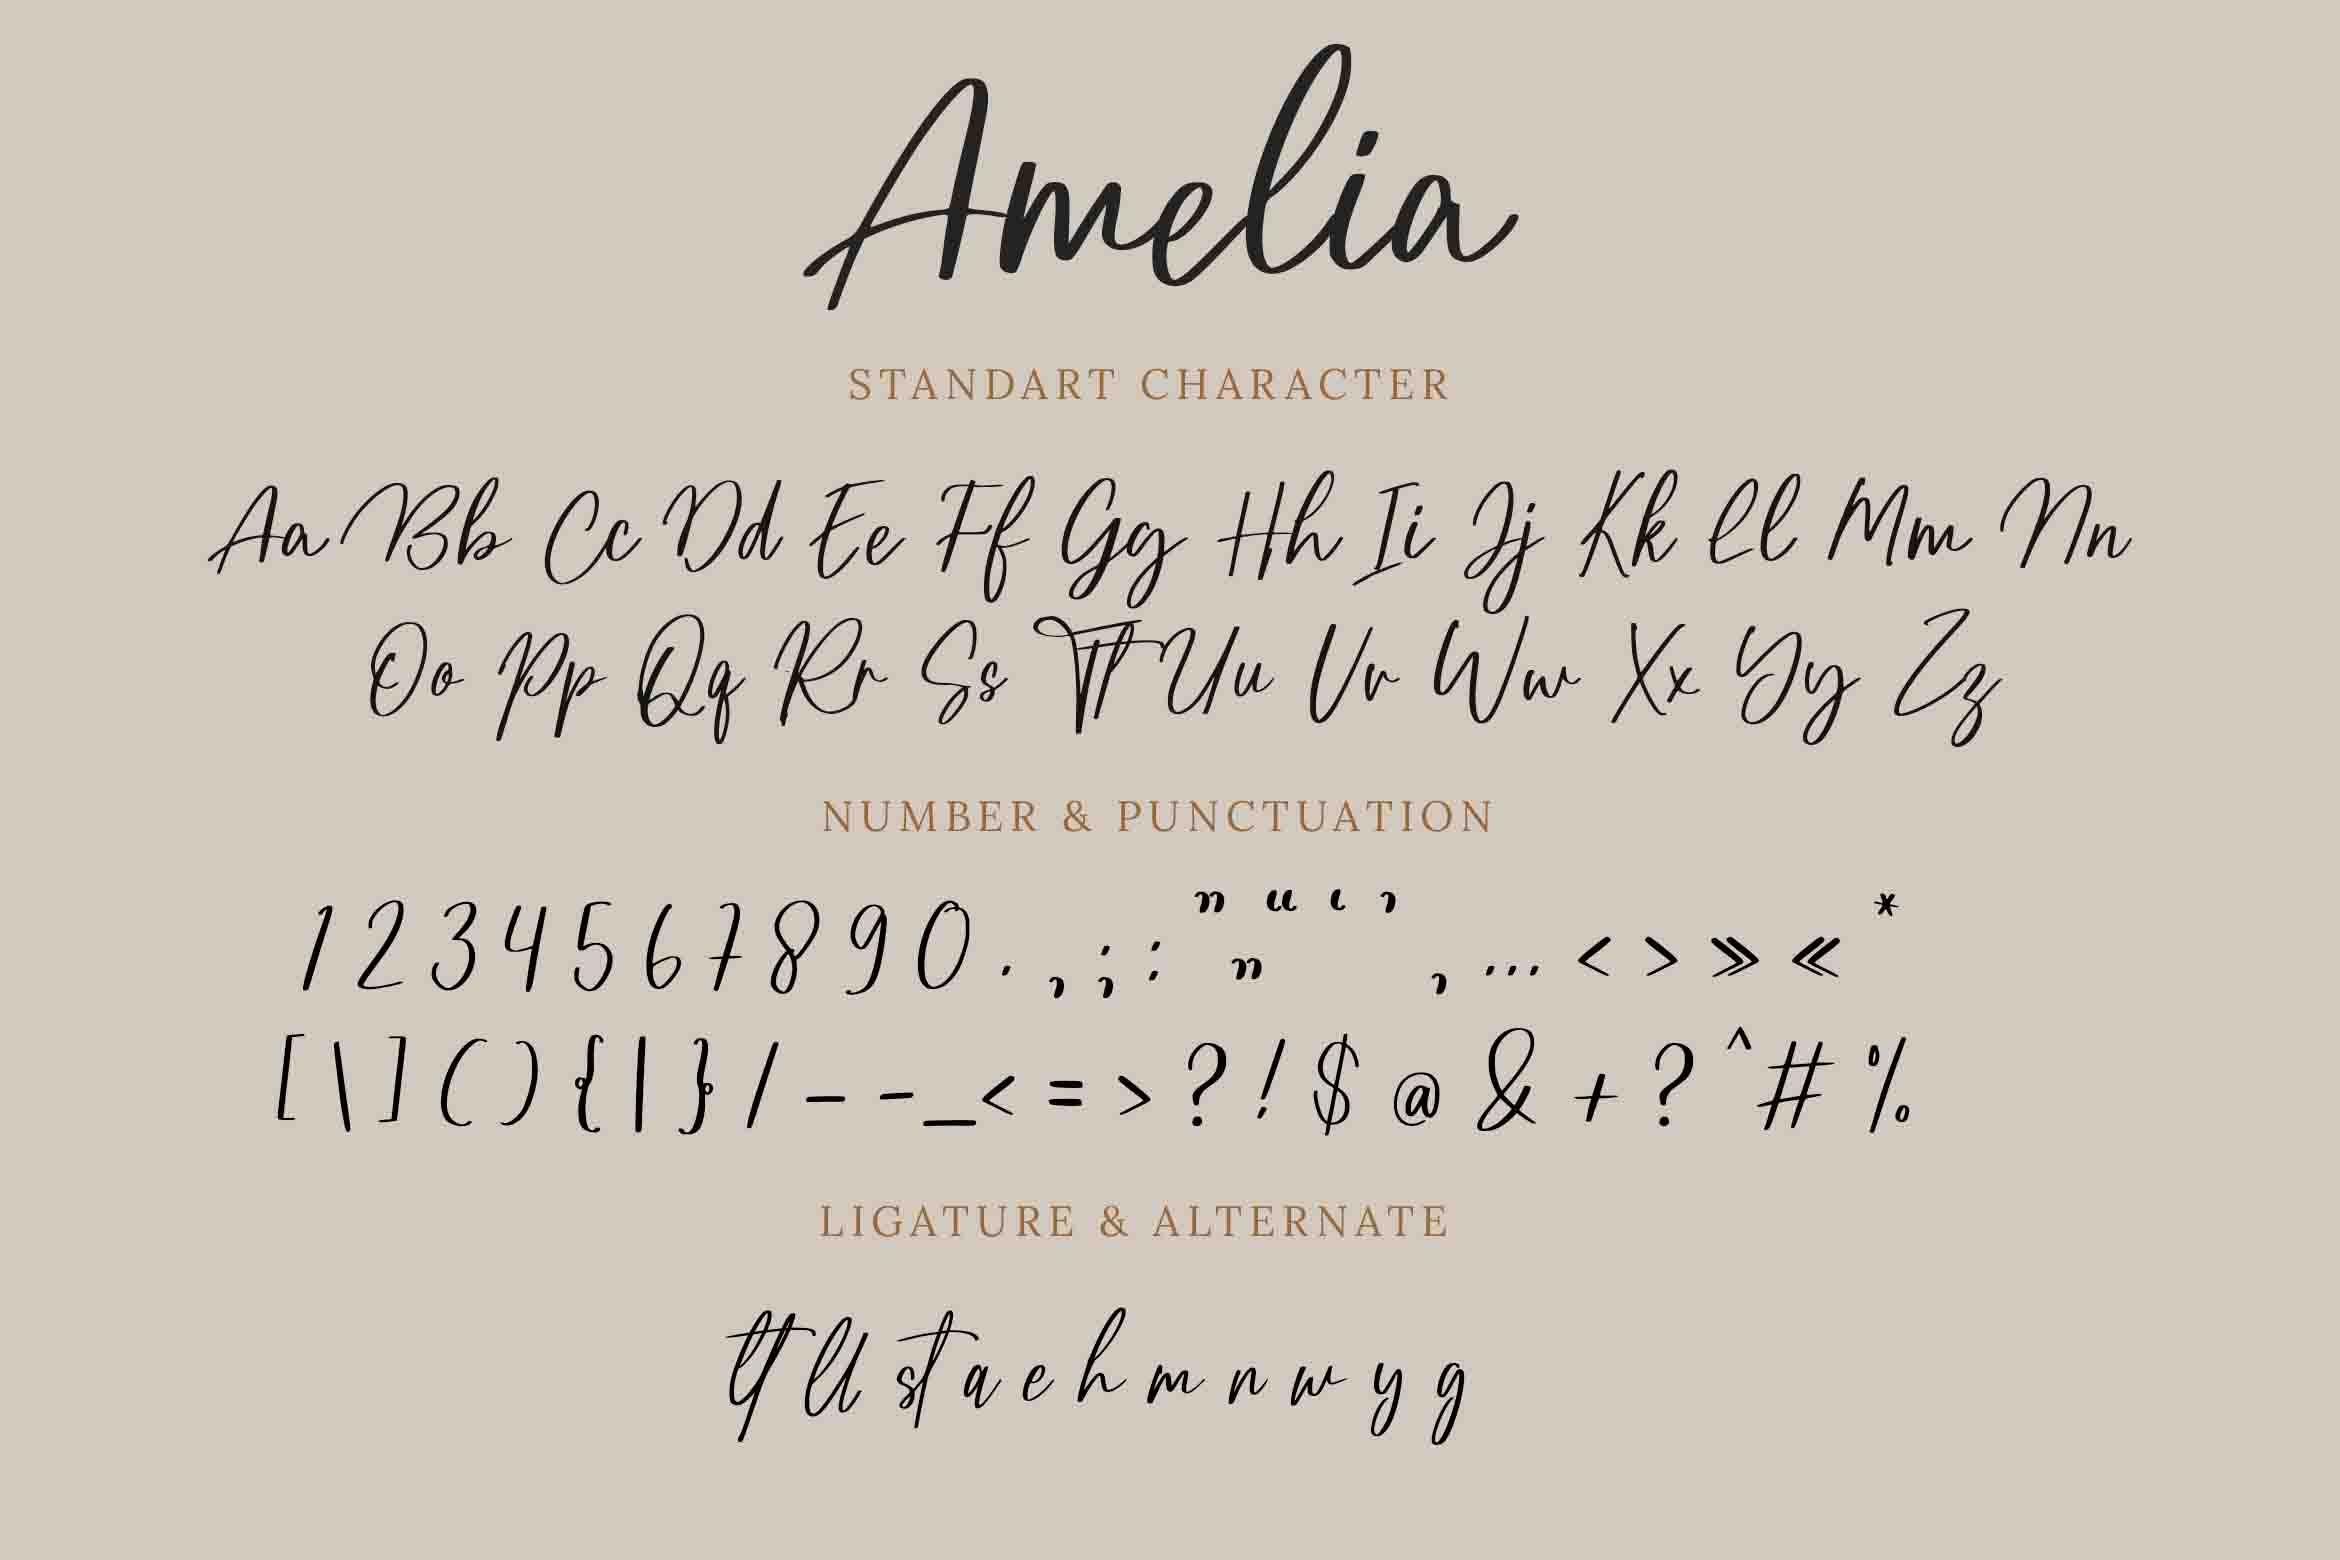 Amelia
STANDART CHARACTER
Aa Bb Cc Dd Ee Ff Gg Hh Ii Jj Kk Ll Mm Nn
Oo Pp Qq Rr Ss Tt Uu Vv Ww Xx Yy Zz
NUMBER & PUNCTUATION
1 2 3 4 5 6 7 8 9 0 . , ; : ” „ “ ‘ ’ ‚ … < > » « *
[ \ ] ( ) { | } / – - _ < = > ? ! $ @ & + ? ^ # %
LIGATURE & ALTERNATE
tt ll st a e h m n w y g